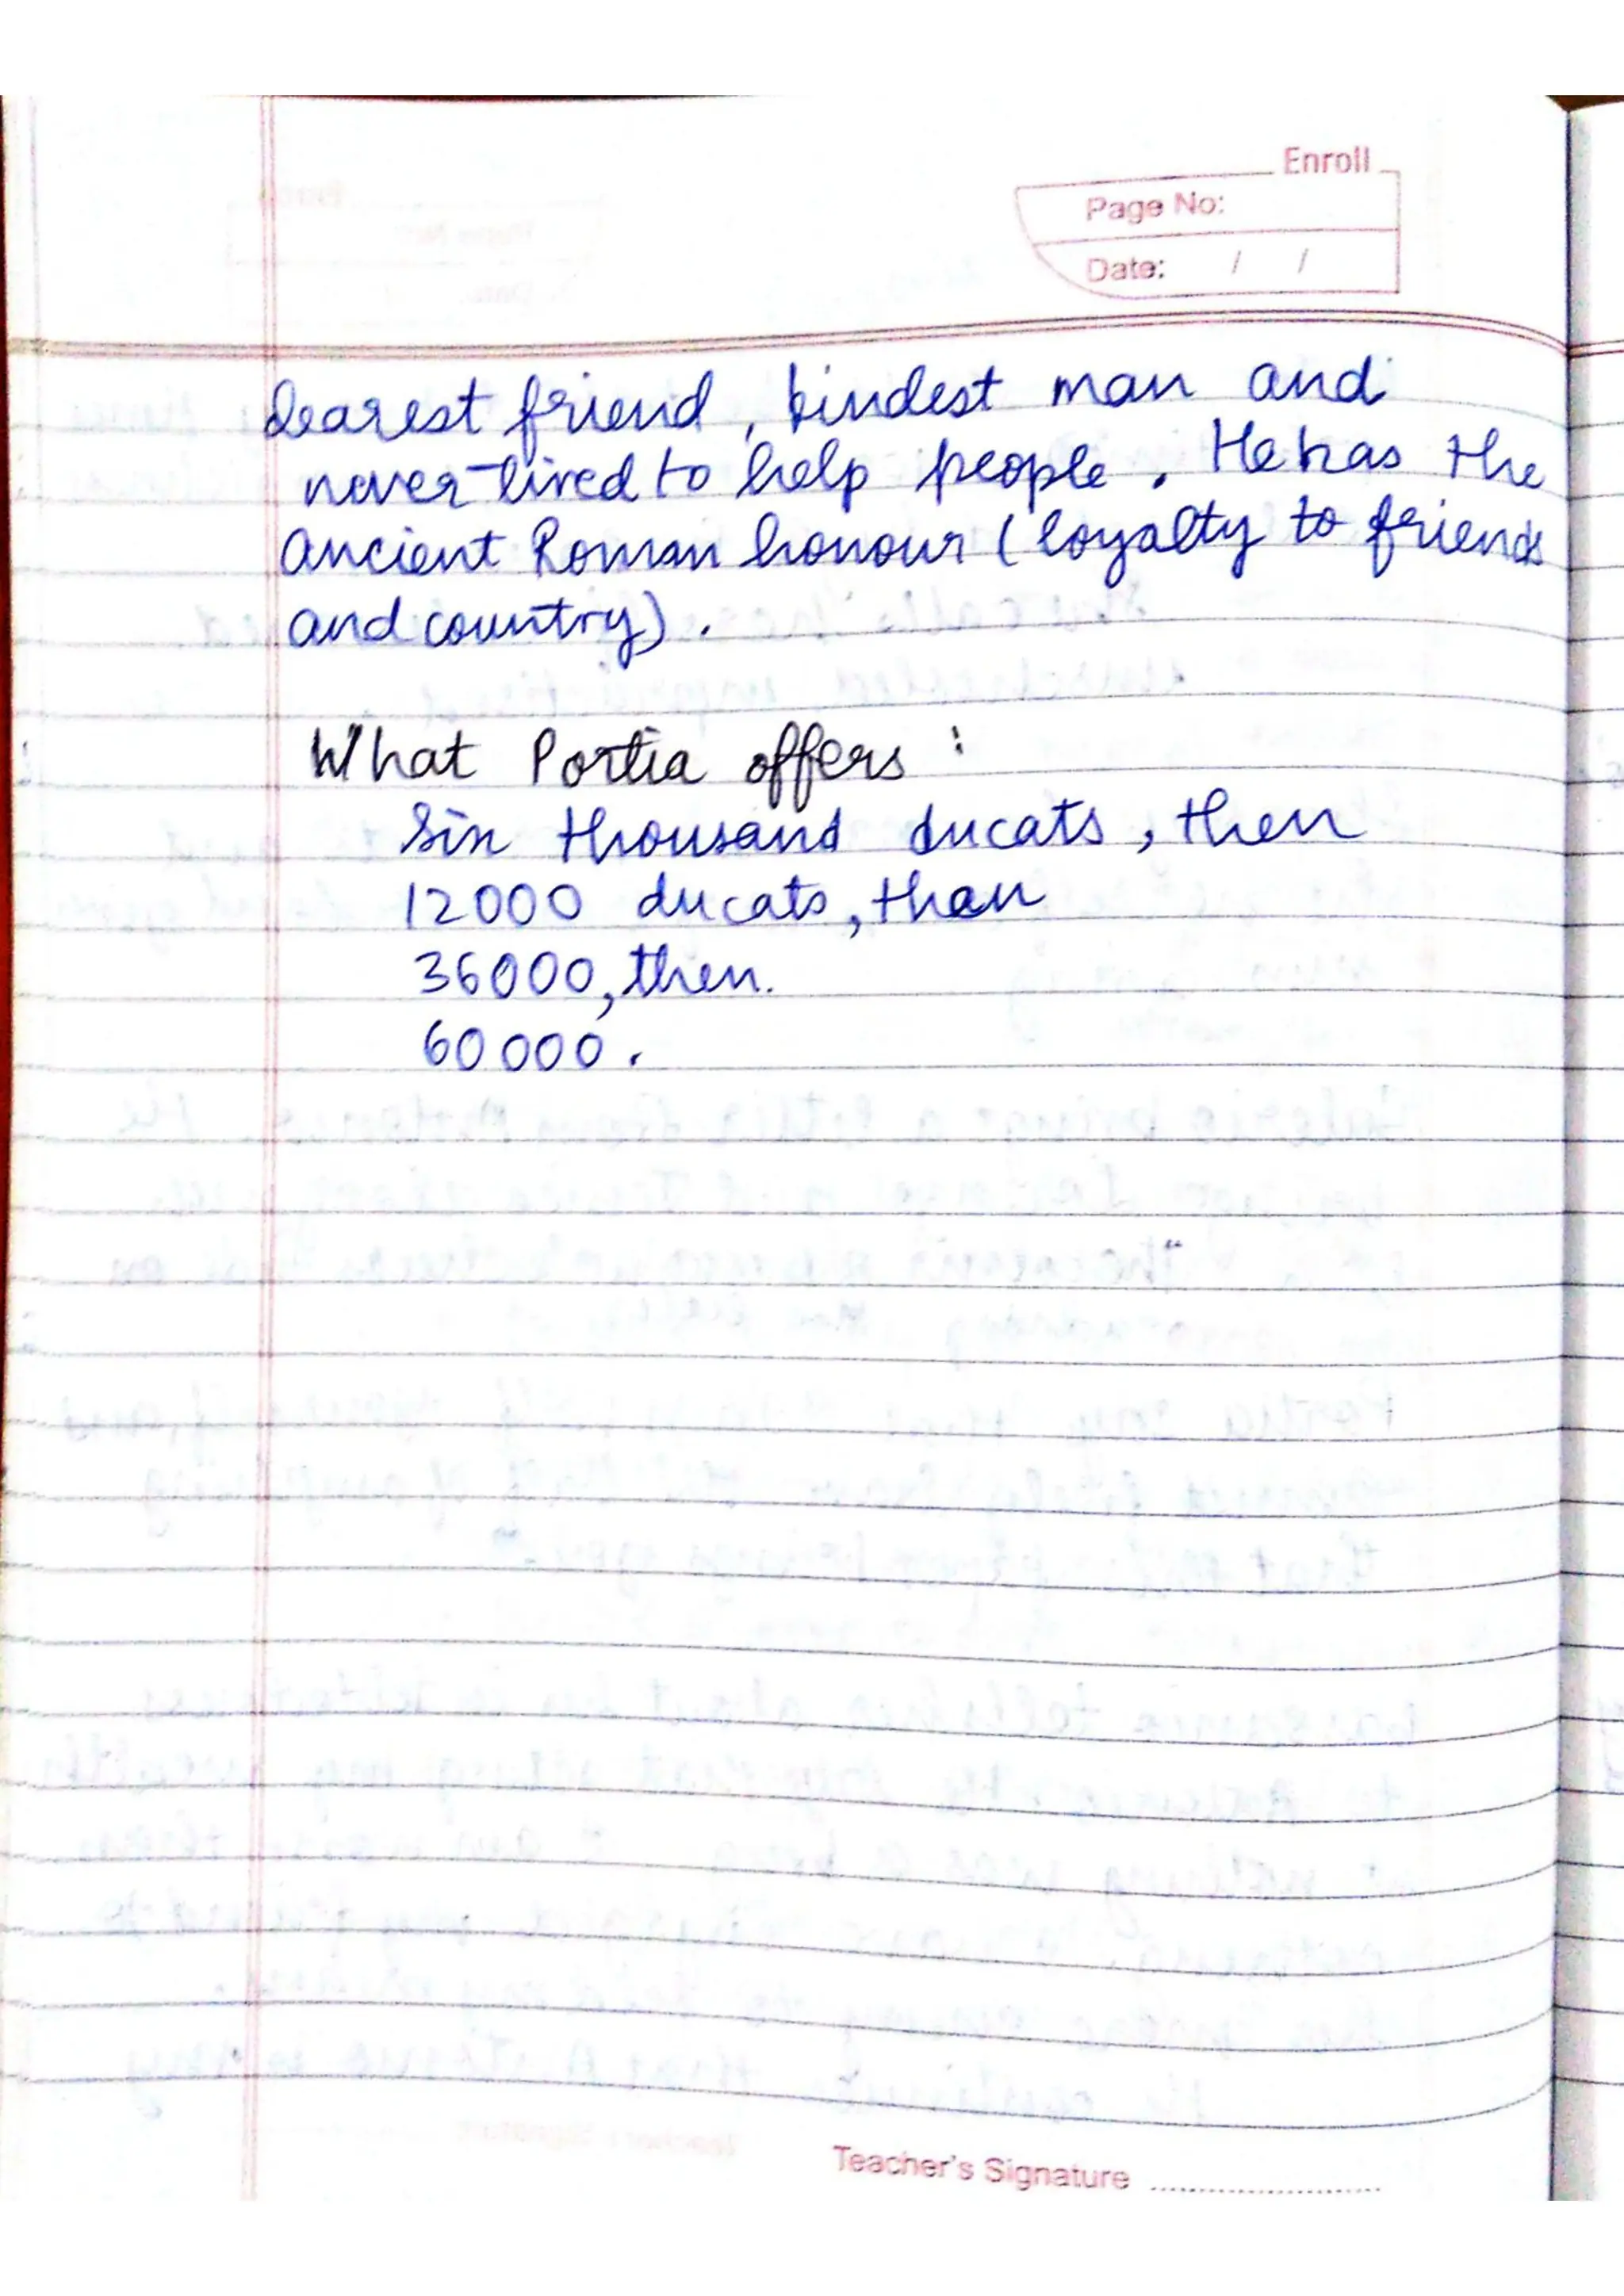 Enroll
Page No:
Date: / /
dearest friend, kindest man and
never-tired to help people. He has the
ancient Roman honour (loyalty to friends
and country).
What Portia offers :
Six thousand ducats, then
12000 ducats, then
36000, then.
60000.
Teacher's Signature